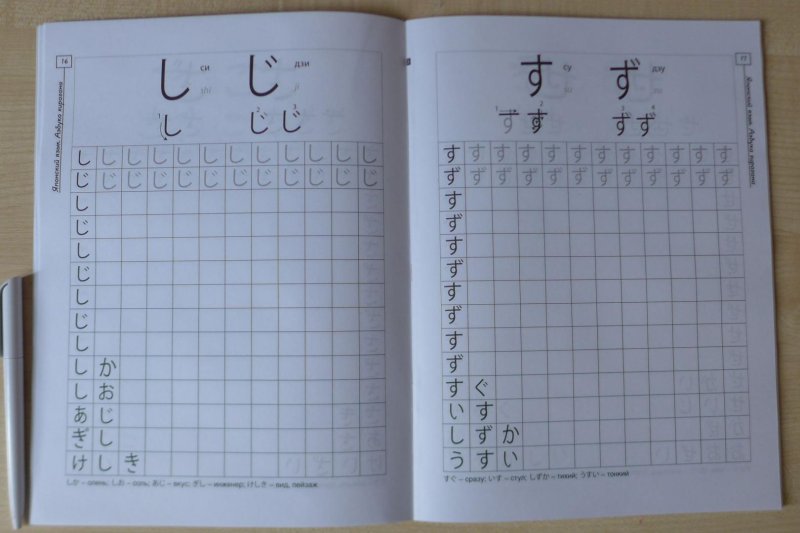 16
Японский язык. Азбука хирагана
し си
shi
じ дзи
ji
1 し
2 じ 3 じ
し し し し し し し し し し し し
じ じ じ じ じ じ じ じ じ じ じ じ
し
じ
し
じ
し
じ
し
し か
し お
あ じ
ぎ し
け し き
しか – олень; しお – соль; あじ – вкус; ぎし – инженер; けしき – вид, пейзаж
17
Японский язык. Азбука хирагана
す су
su
ず дзу
zu
1 す 2 す
3 ず 4 ず
す す す す す す す す す す す す
ず ず ず ず ず ず ず ず ず ず ず ず
す
ず
す
ず
す
ず
す
ず
す ぐ
い す
し ず か
う す い
すぐ – сразу; いす – стул; しずか – тихий; うすい – тонкий